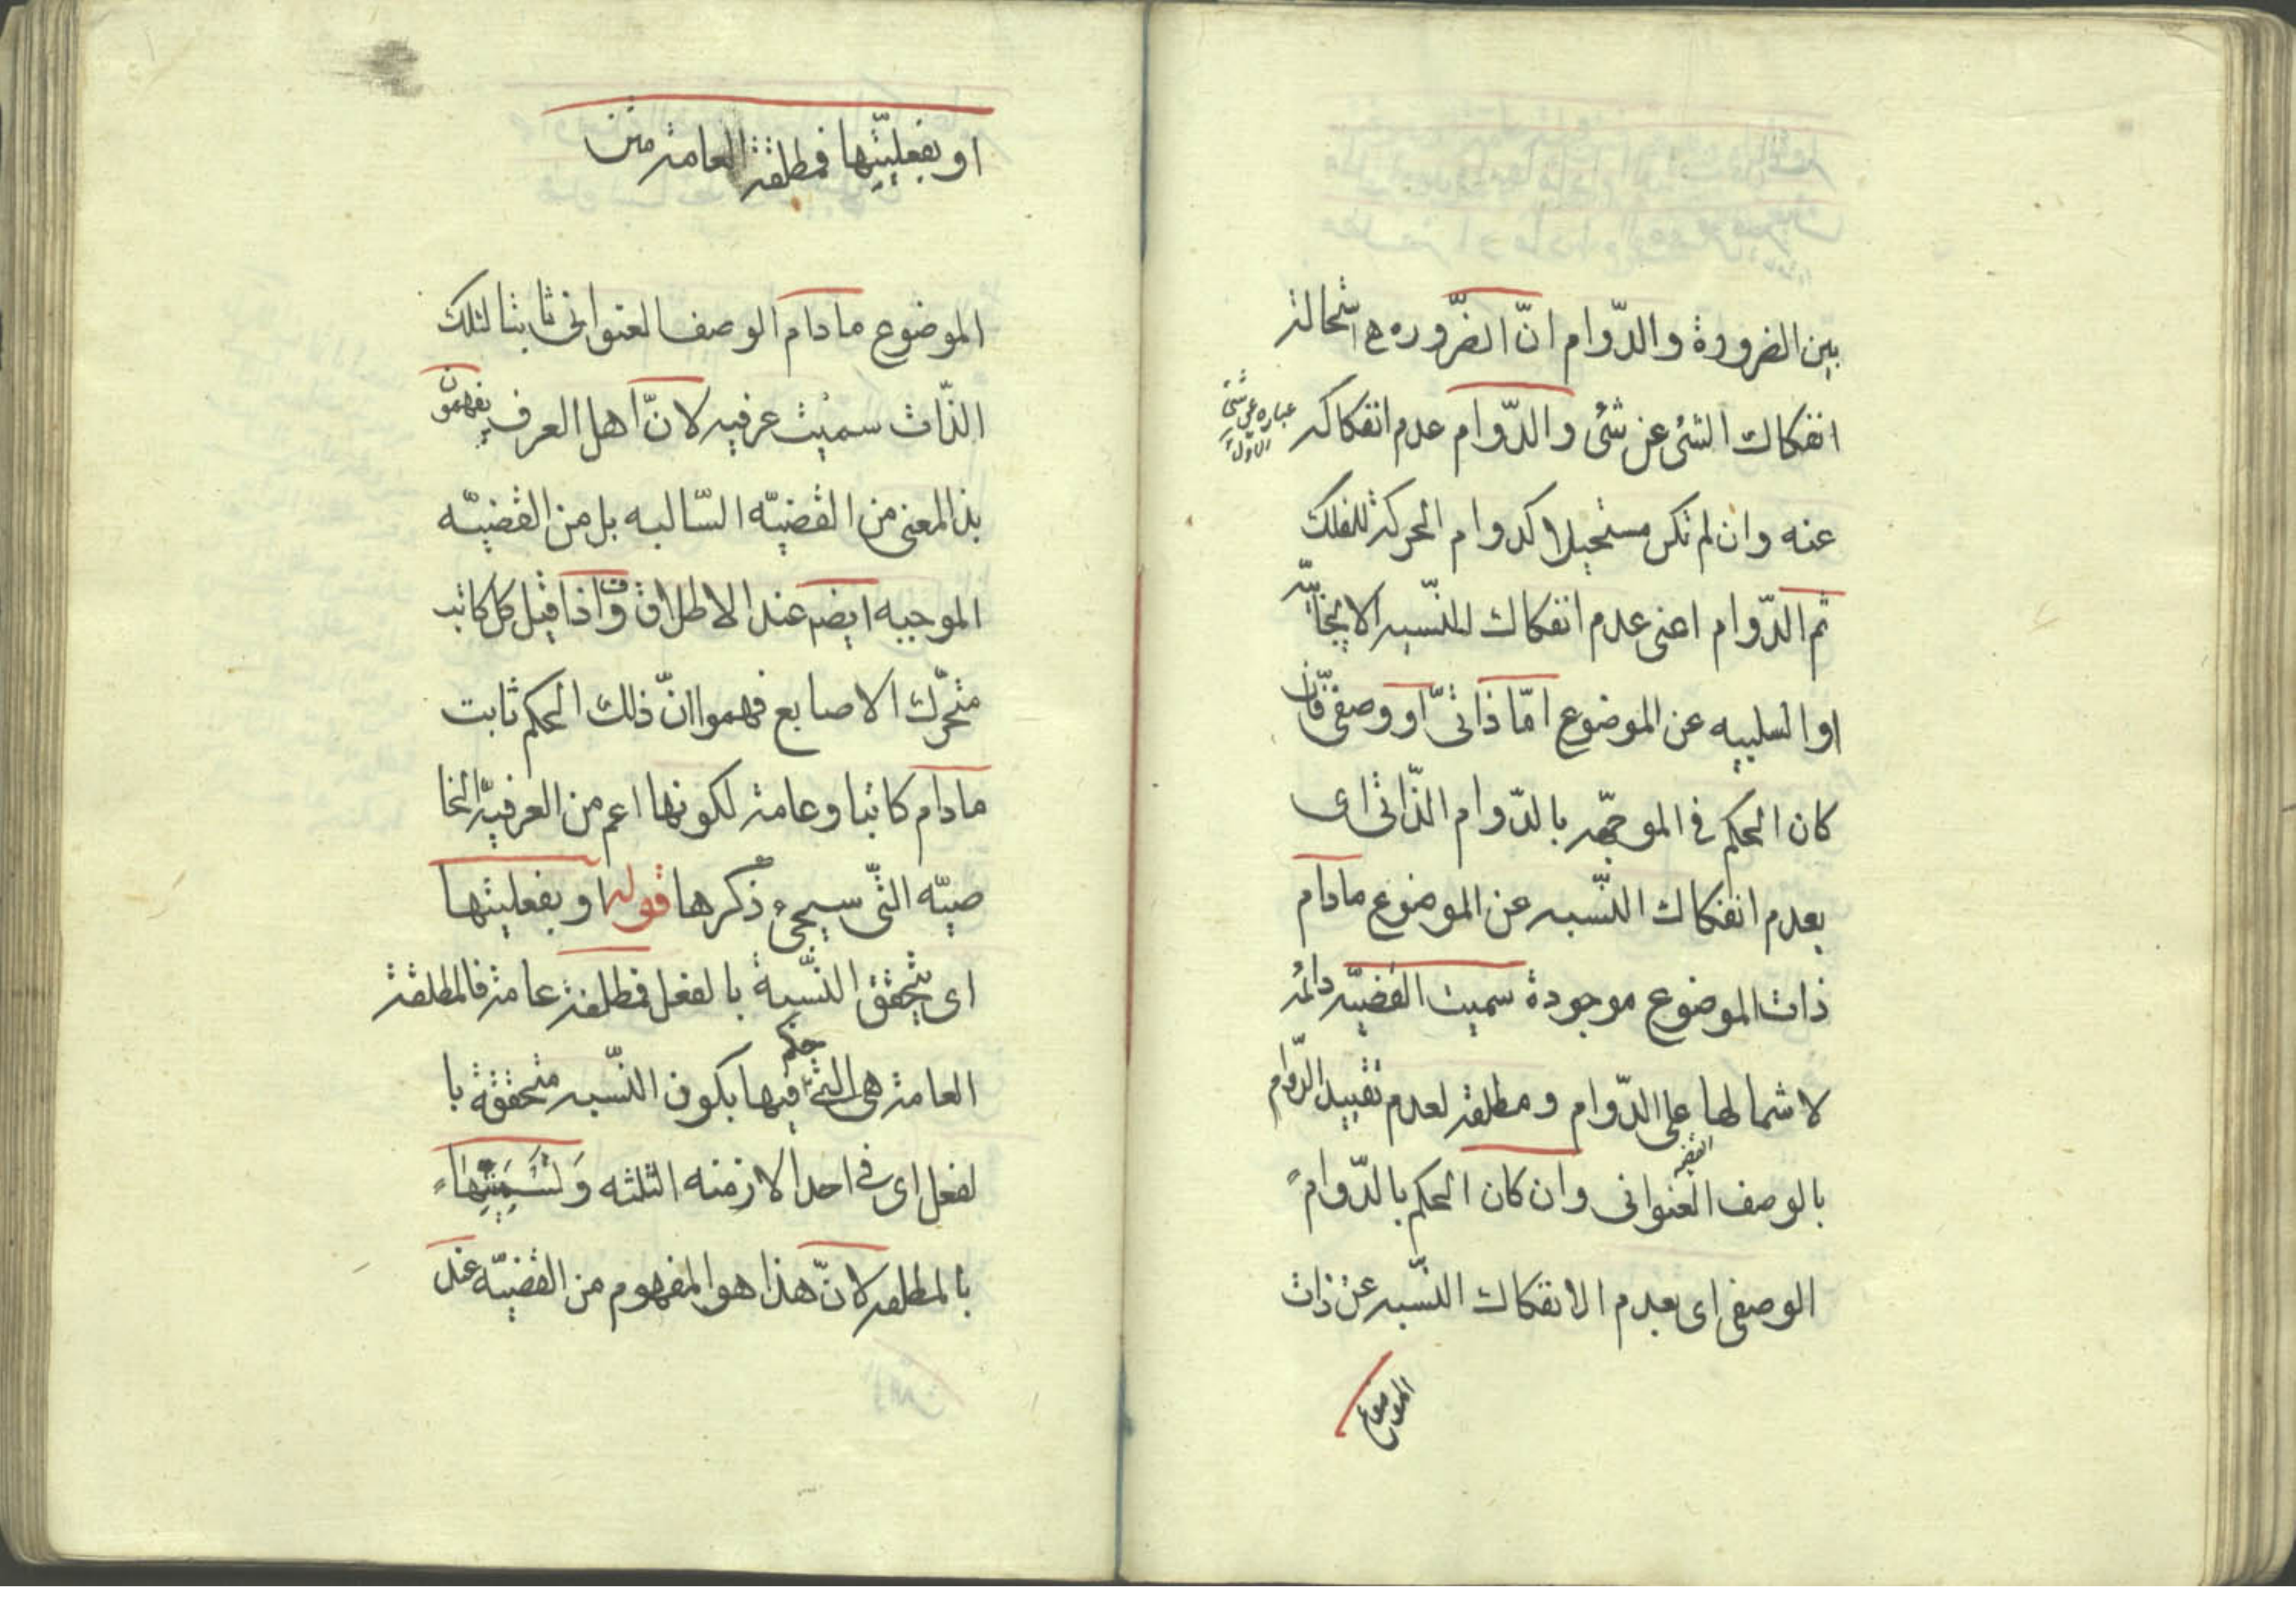 بين الضرورة والدّوام انّ الضّروره هى استحالة
انفكاك الشئ عن شئ والدّوام عدم انفكاكه
عنه وان لم تكن مستحيلا كدوام الحركة للفلك
ثم الدّوام اعنى عدم انفكاك النّسبه الايجابيّه
او السلبيه عن الموضوع امّا ذاتىّ او وصفىّ فان
كان الحكم فى الموجّهه بالدّوام الذّاتى اى
بعدم انفكاك النّسبه عن الموضوع مادام
ذات الموضوع موجودة سميت القضيّه دائمه
لاشمالها على الدّوام ومطلقه لعدم تقييد الدّوام
بالوصف العنوانى وان كان الحكم بالدّوام
الوصفى اى بعدم الانفكاك النّسبه عن ذات
الموضوع
او بفعليّتها فمطلقة العامة متن
الموضوع مادام الوصف العنوانى ثابتا لتلك
الذّات سميت عرفيه لانّ اهل العرف يفهمون
بذالمعنى من القضيّه السّالبه بل من القضيّه
الموجبه ايضم عند الاطلاق واذا قيل كل كاتب
متحرّك الاصابع فهموا انّ ذلك الحكم ثابت
مادام كاتبا وعامة لكونها اعم من العرفيّه الخا
صيّه التّى سيجئ ذكرها قوله او بفعليتها
اى يتحقق النّسبة بالفعل فمطلقة عامة فالمطلقة
العامة هى التى حكم فيها بكون النّسبه متحققة با
لفعل اى فى احد الازمنه الثلثه وتسميتها
بالمطلقه لانّ هذا هو المفهوم من القضيّه عند